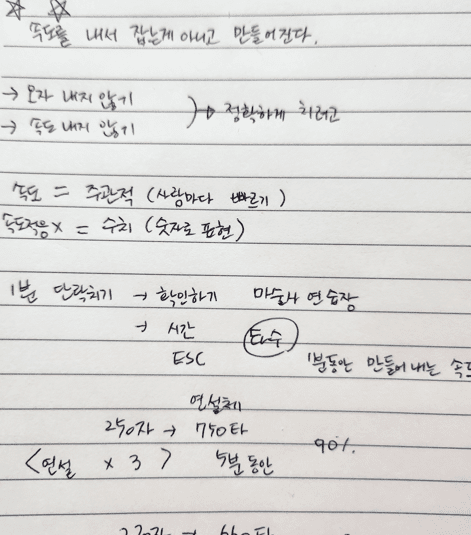 ☆ ☆
속도를 내서 잡는게 아니고 만들어진다.
→ 오자 내지 않기
→ 속도 내지 않기
→ 정확하게 치려고
속도 = 주관적 (사람마다 빠르기)
속도적응 X = 수치 (숫자로 표현)
1분 단락치기 → 확인하기 마술사 연습장
→ 시간 타수
ESC 1분동안 만들어 내는 속도
연설체
250자 → 750타
90%
<연설 x 3> 5분 동안
220자 → 660타